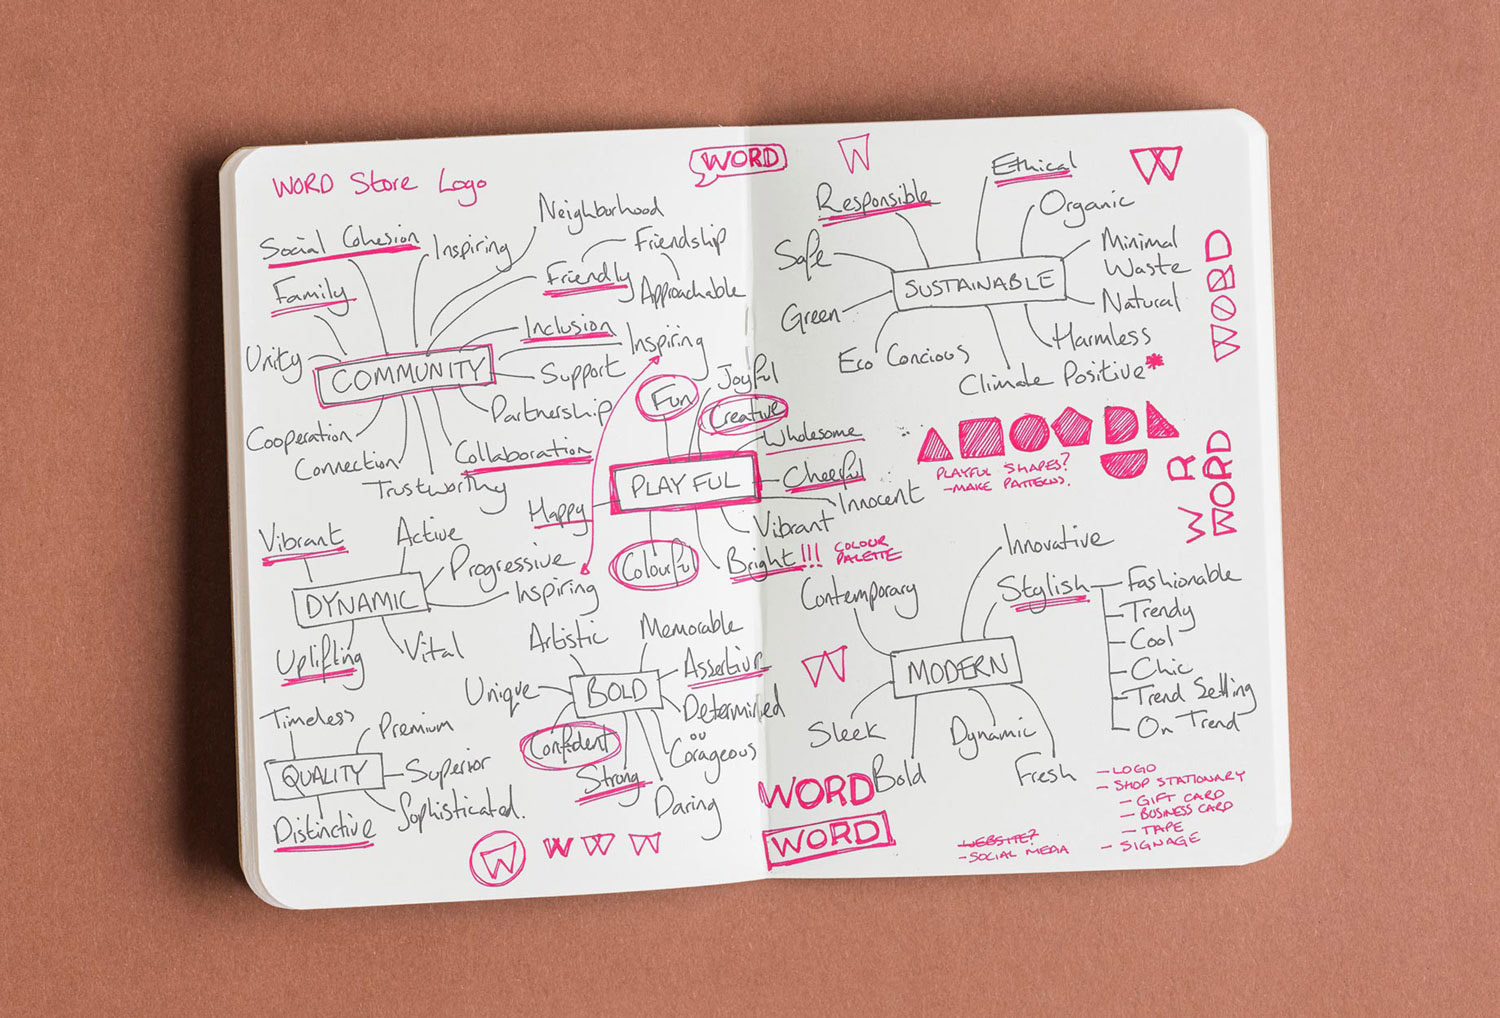 WORD Store Logo
Social Cohesion
Inspiring
Neighborhood
Family
Friendly
Friendship
Approachable
Unity
Inclusion
Support
COMMUNITY
Partnership
Cooperation
Connection
Trustworthy
Collaboration
Inspiring
Fun
Joyful
Creative
Wholesome
PLAYFUL
Cheerful
Innocent
Happy
Vibrant
Colourful
Bright!!!
COLOUR
PALETTE
Vibrant
Active
Progressive
DYNAMIC
Inspiring
Uplifting
Vital
Artistic
Memorable
Assertive
Unique
BOLD
Determined
Confident
ou
Corageous
Strong
Daring
Timeless
Premium
QUALITY
Superior
Sophisticated.
Distinctive
W
W W W
WORD
W
W
Responsible
Ethical
Organic
Safe
Minimal
Waste
SUSTAINABLE
Natural
Green
Harmless
Eco Concious
Climate Positive*
WORD
PLAYFUL SHAPES?
-MAKE PATTERNS.
W R
WORD
Innovative
Contemporary
Stylish
Fashionable
Trendy
Cool
Chic
Trend Setting
On Trend
W
MODERN
Sleek
Dynamic
Bold
Fresh
WORD
WORD
WEBSITE?
- SOCIAL MEDIA
- LOGO
- SHOP STATIONARY
- GIFT CARD
- BUSINESS CARD
- TAPE
- SIGNAGE